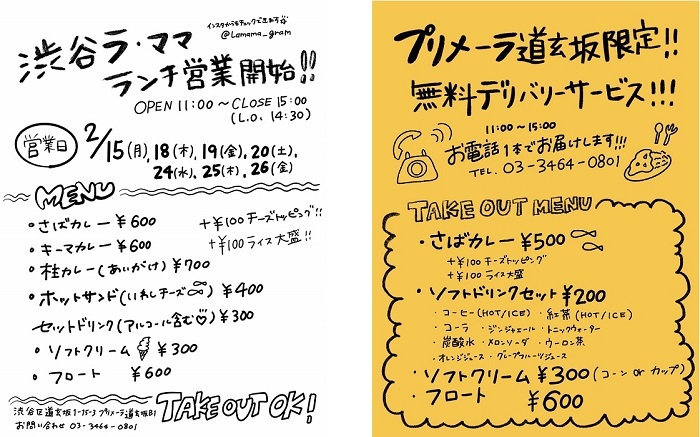 インスタからもチェックできます☆
@Lamama_gram
渋谷ラ・ママ
ランチ営業開始!!
OPEN 11:00〜CLOSE 15:00
(L.O. 14:30)
営業日
2/15(月), 18(木), 19(金), 20(土),
24(水), 25(木), 26(金)
MENU
・さばカレー ¥600
・キーマカレー ¥600
+¥100 チーズトッピング!!
+¥100 ライス大盛!!
・桂カレー(あいがけ) ¥700
・ホットサンド(いわしチーズ) ¥400
セットドリンク(アルコール含む♡) ¥300
・ソフトクリーム ¥300
・フロート ¥600
渋谷区道玄坂1-15-3 プリメーラ道玄坂B1
お問い合わせ 03-3464-0801
TAKE OUT OK!
プリメーラ道玄坂限定!!
無料デリバリーサービス!!!
11:00〜15:00
お電話1本でお届けします!!!
TEL. 03-3464-0801
TAKE OUT MENU
・さばカレー ¥500
+¥100 チーズトッピング
+¥100 ライス大盛
・ソフトドリンクセット ¥200
・コーヒー(HOT/ICE) ・紅茶(HOT/ICE)
・コーラ ・ジンジャエール ・トニックウォーター
・炭酸水 ・メロンソーダ ・ウーロン茶
・オレンジジュース ・グレープフルーツジュース
・ソフトクリーム ¥300(コーン or カップ)
・フロート ¥600